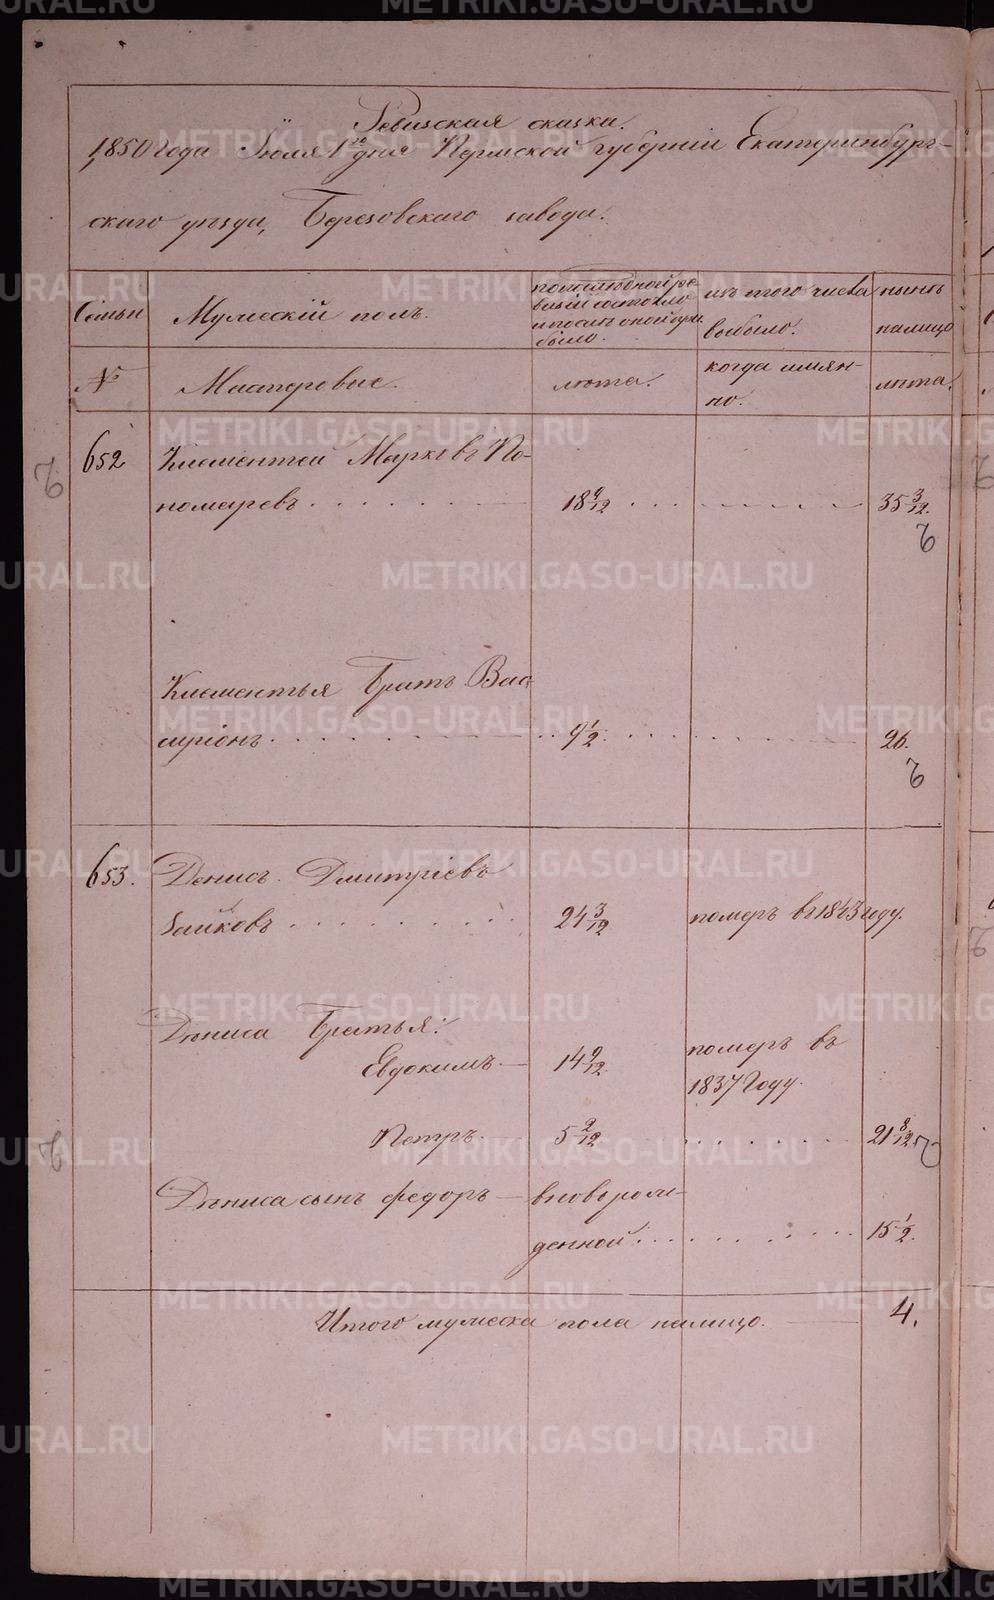 Ревизская сказка.
1850 года Іюля 1го дня Пермской губерніи Екатеринбург-
скаго уѣзда, Березовскаго завода.
Семьи
Мужескій полъ.
по последной ре-
визіи состояло
и послѣ оной при
было.
изъ того числа
выбыло.
нынѣ
налицо
№
Мастеровые.
лѣта.
когда имян-
но.
лѣта.
652
Клементей Марковъ По-
номаревъ
18 9/12
35 3/12.
Клементья Братъ Вас-
9 1/2
26.
653.
Денисъ Дмитріевъ
24 3/12
померъ въ 1843 году.
Дениса Братья:
Евдокимъ
14 9/12
померъ въ
1837 Году.
Петръ
5 2/12
21 8/12
Дениса сынъ Федоръ
вновьрож-
денной
15 1/2.
Итого мужеска пола налицо.
4.
METRIKI.GASO-URAL.RU